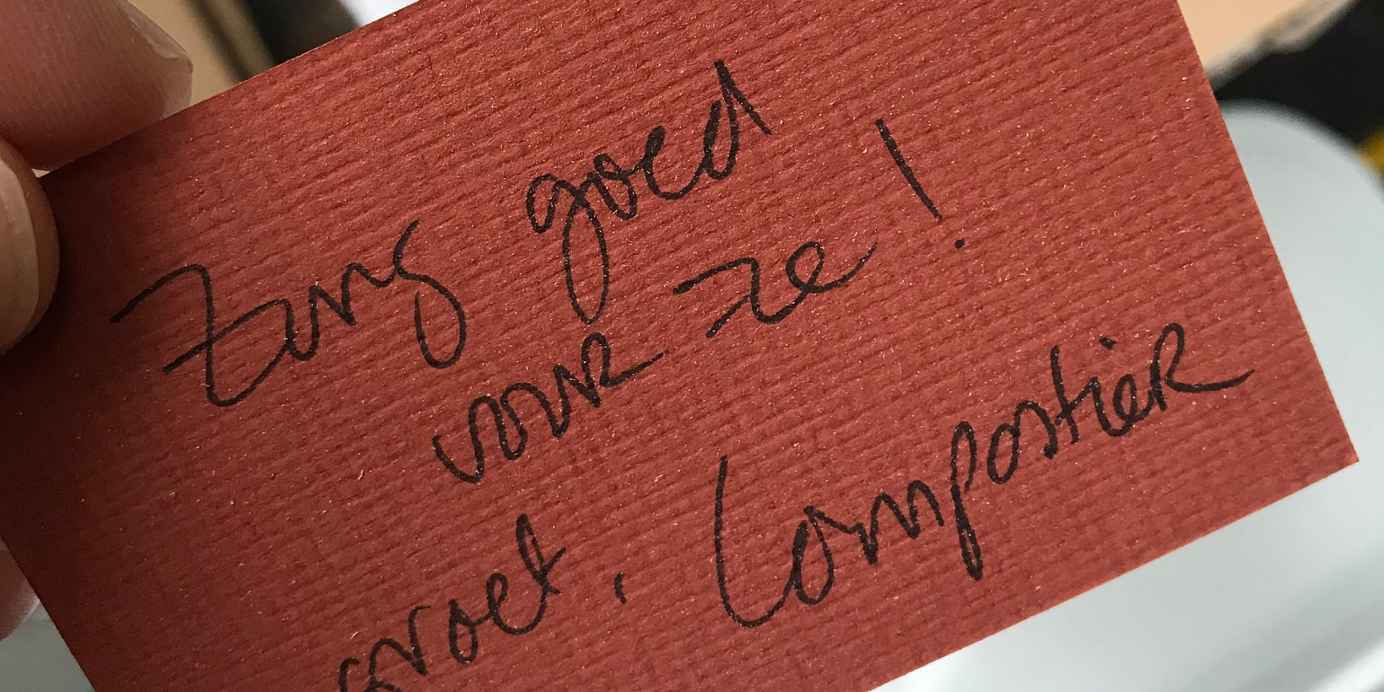 Zorg goed
voor ze!
groet, Compostier